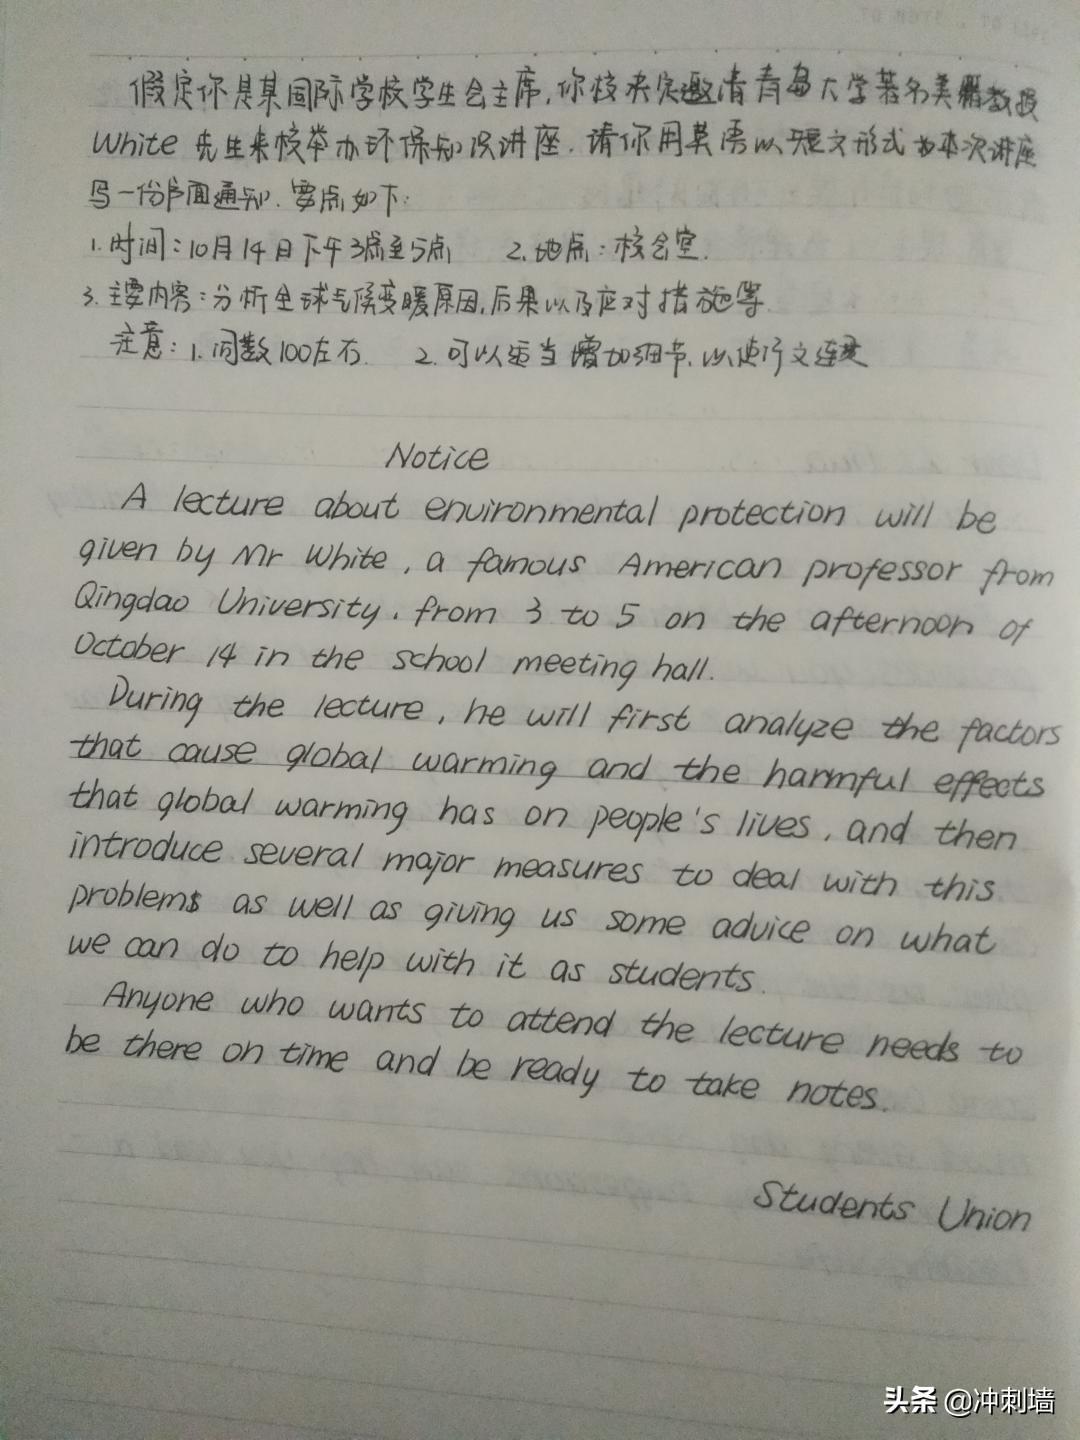 假定你是某国际学校学生会主席,你校决定邀请青岛大学著名美籍教授
White 先生来校举办环保知识讲座.请你用英语以短文形式为本次讲座
写一份书面通知.要点如下:
1.时间:10月14日下午3点至5点 2.地点:校会室.
3.主要内容:分析全球气候变暖原因,后果以及应对措施等.
注意:1.词数100左右. 2.可以适当增加细节,以使行文连贯
Notice
A lecture about environmental protection will be
given by Mr White, a famous American professor from
Qingdao University, from 3 to 5 on the afternoon of
October 14 in the school meeting hall.
During the lecture, he will first analyze the factors
that cause global warming and the harmful effects
that global warming has on people's lives, and then
introduce several major measures to deal with this
problems as well as giving us some advice on what
we can do to help with it as students.
Anyone who wants to attend the lecture needs to
be there on time and be ready to take notes.
Students Union
头条 @冲刺墙